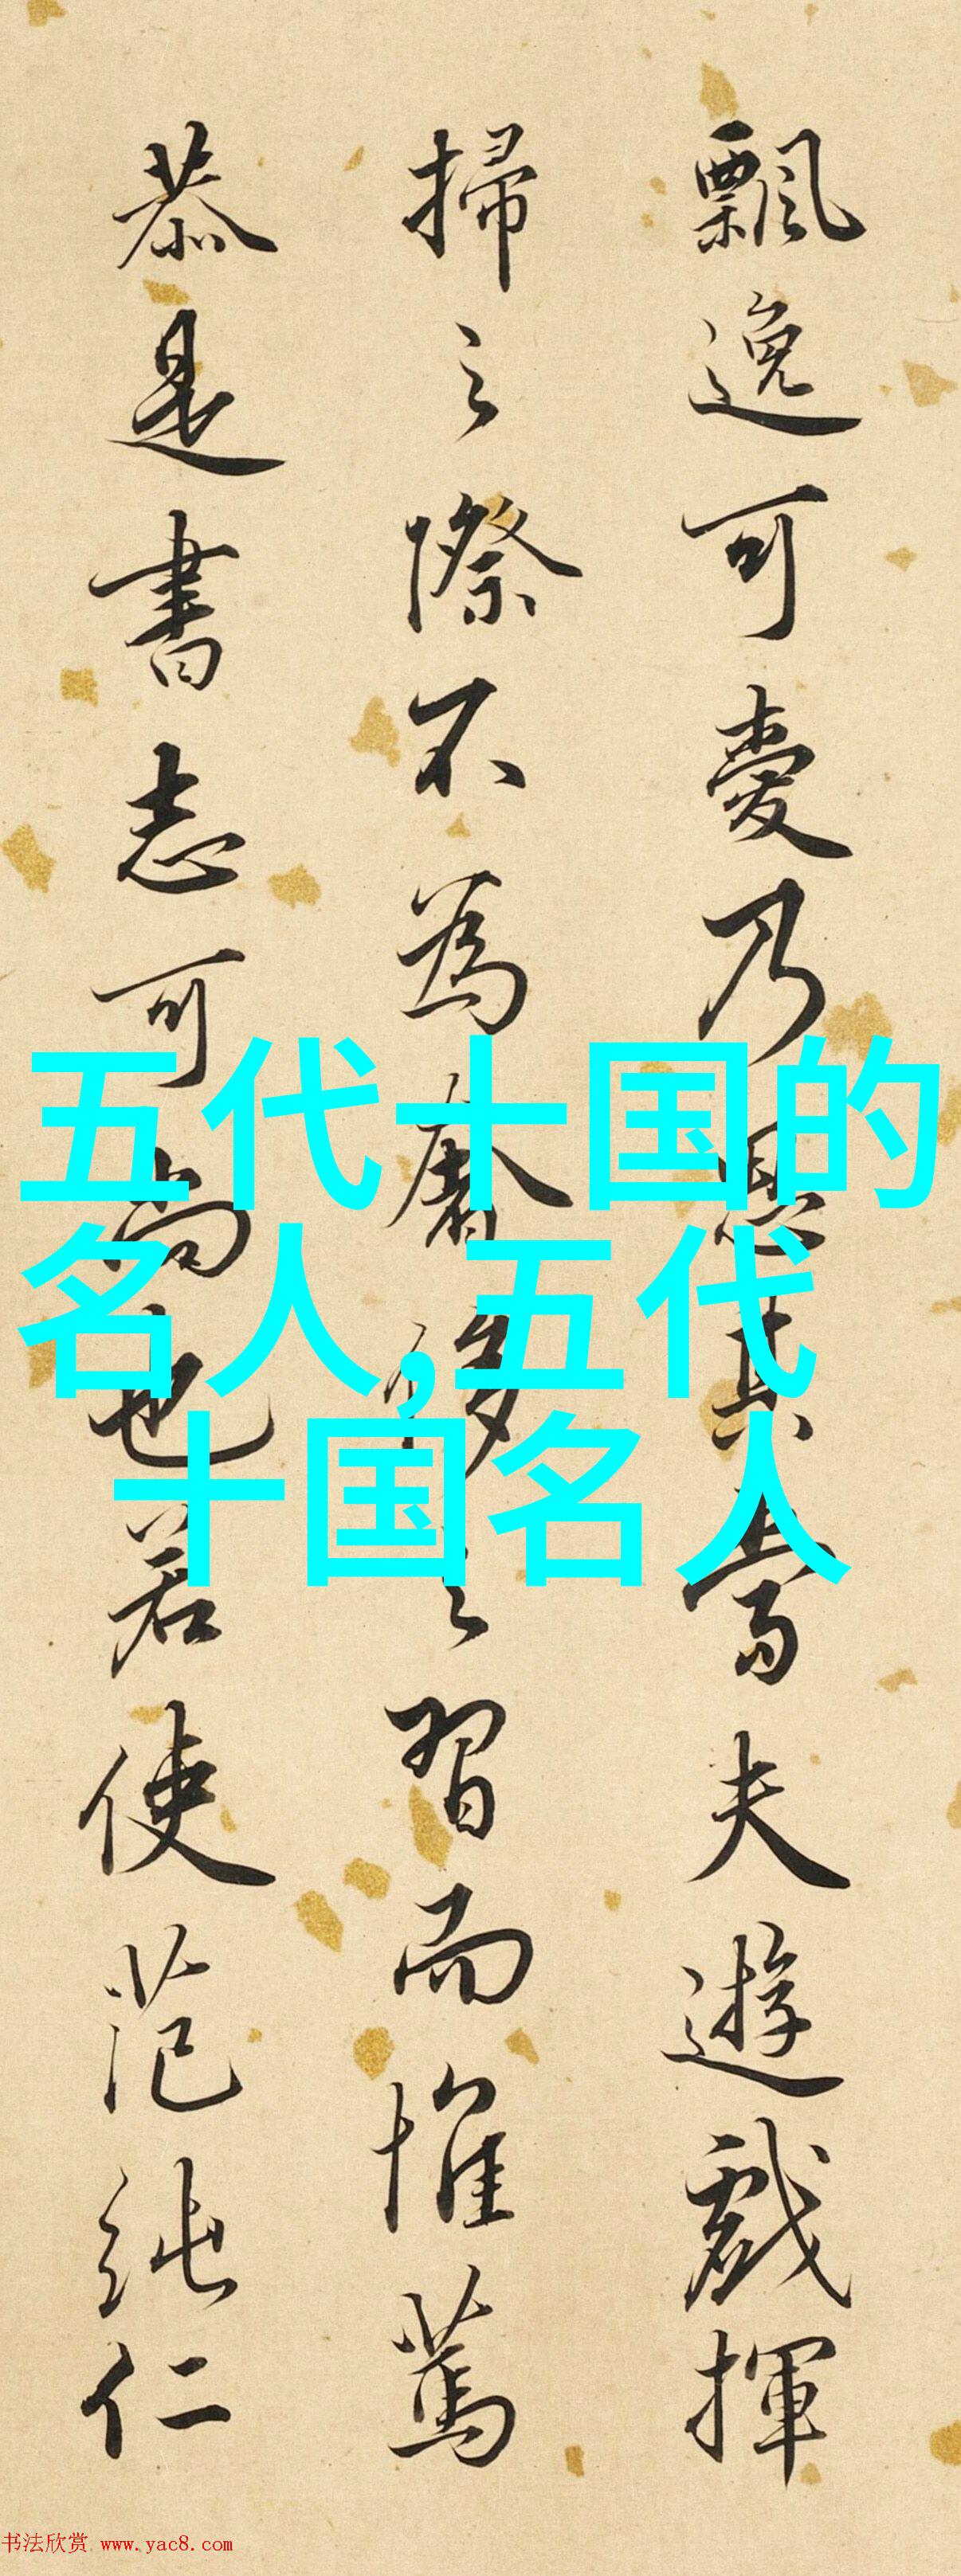 飄逸可愛乃思其嘗夫遊戲揮
掃之際不為奢侈之習而惟篤
恭是書志可尚也若使范純仁
五代十国的
名人,五代
十国名人
书法欣赏 www.yac8.com